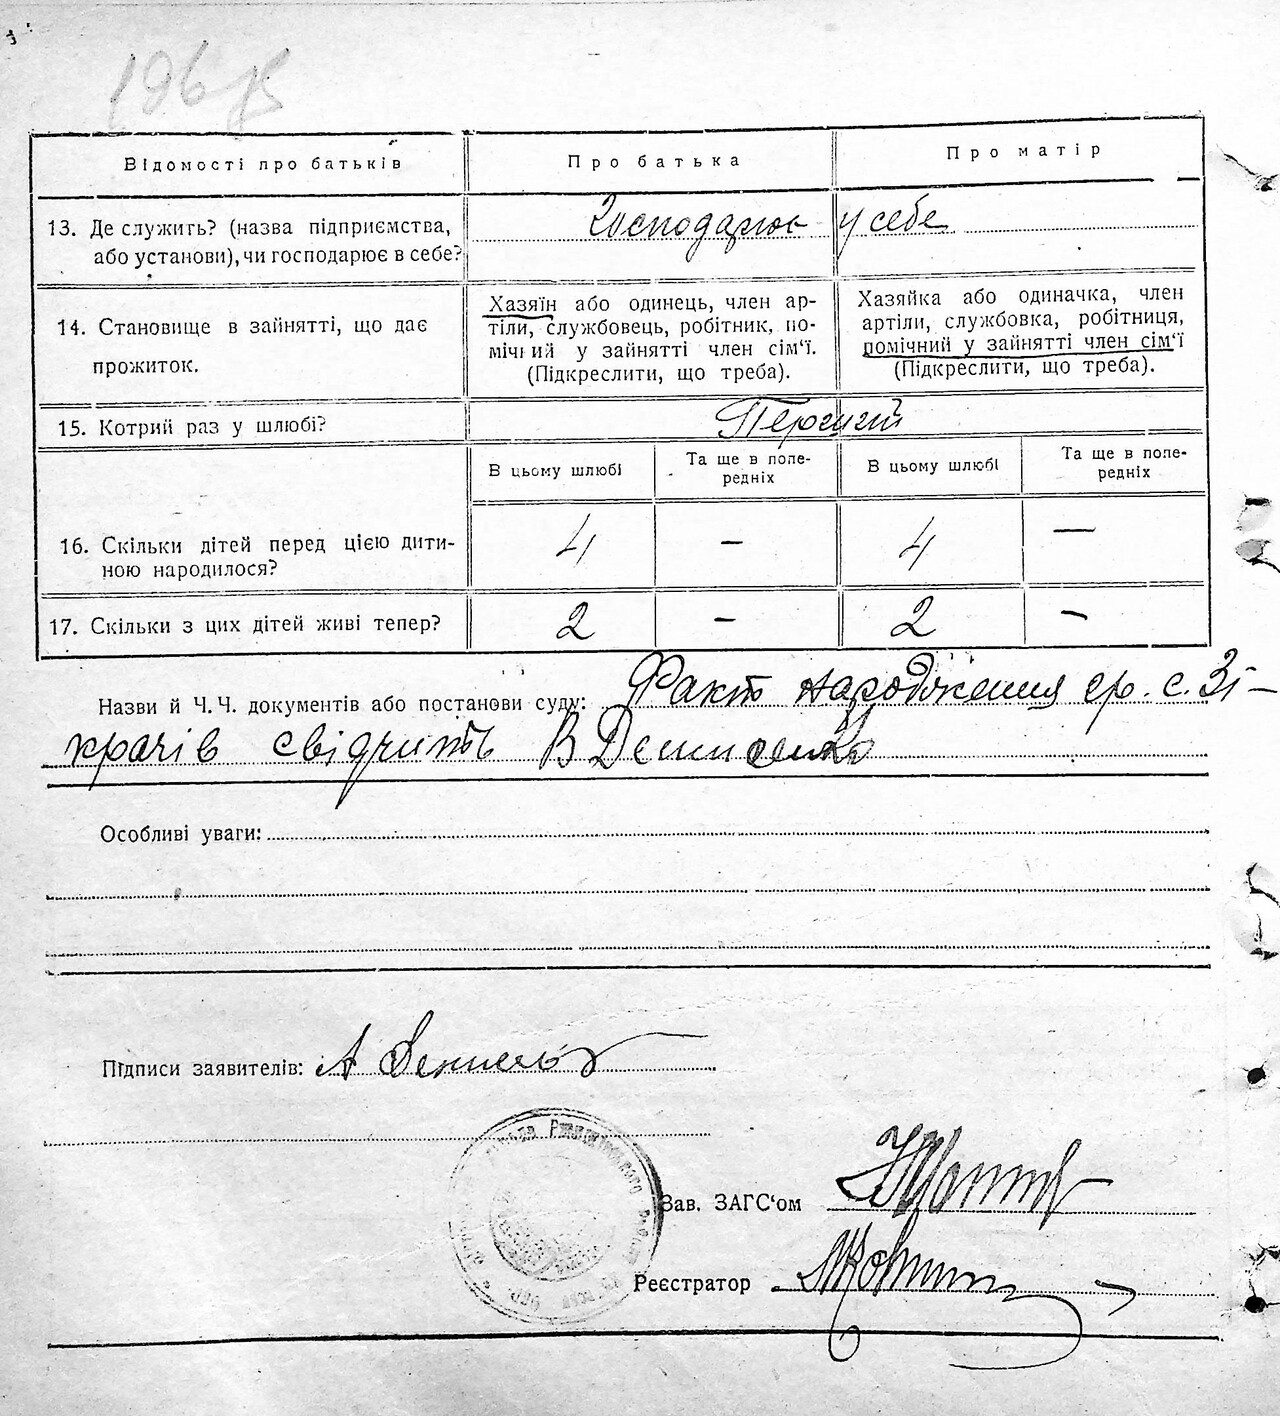 Відомості про батьків
Про батька
Про матір
13. Де служить? (назва підприємства,
або установи), чи господарює в себе?
Господарює у себе
14. Становище в зайнятті, що дає
прожиток.
Хазяїн або одинець, член ар-
тіли, службовець, робітник, по-
мічний у зайнятті член сім'ї.
(Підкреслити, що треба).
Хазяйка або одиначка, член
артіли, службовка, робітниця,
помічний у зайнятті член сім'ї
(Підкреслити, що треба).
15. Котрий раз у шлюбі?
В цьому шлюбі
Та ще в попе-
редніх
В цьому шлюбі
Та ще в попе-
редніх
16. Скільки дітей перед цією дити-
ною народилося?
4 — 4 —
17. Скільки з цих дітей живі тепер?
2 — 2 —
Назви й Ч. Ч. документів або постанови суду: Факт народження с.
свідчить В Денисенко
Особливі уваги:
Підписи заявителів: А
Зав. ЗАГС'ом
Реєстратор